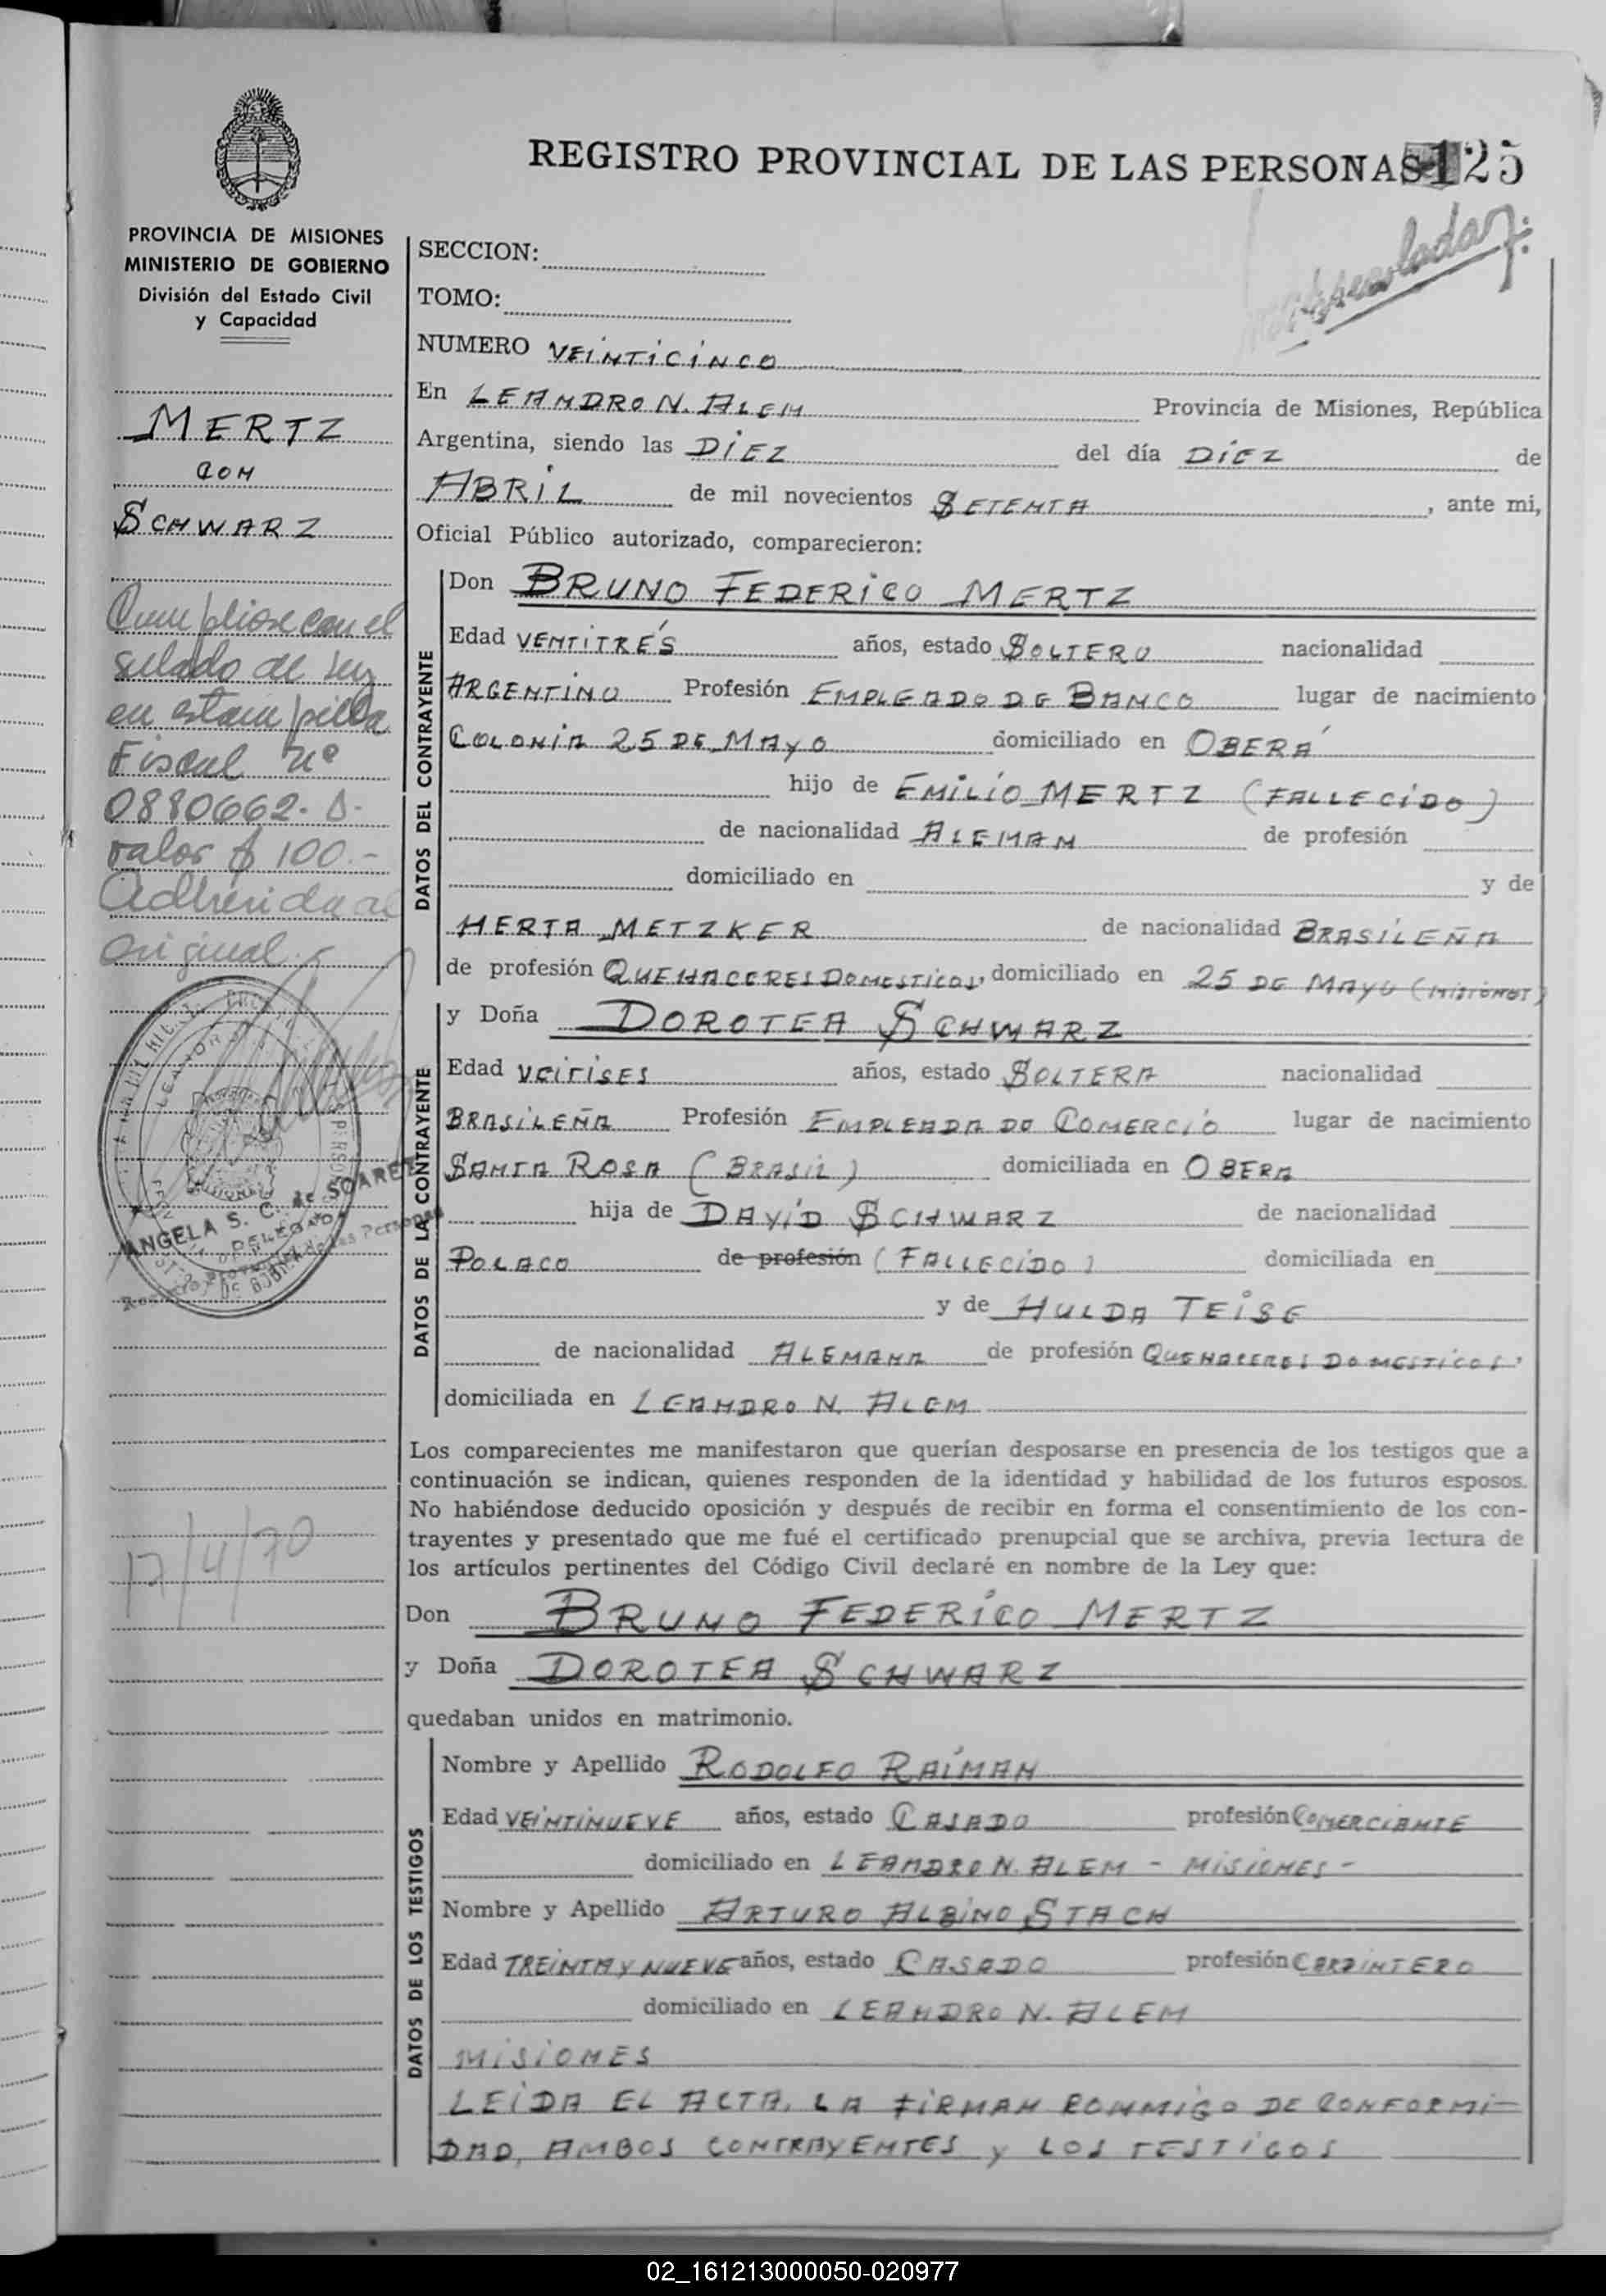 REGISTRO PROVINCIAL DE LAS PERSONAS 125
PROVINCIA DE MISIONES
MINISTERIO DE GOBIERNO
División del Estado Civil
y Capacidad
MERTZ
CON
SCHWARZ
Cumpliose con el
sellado de ley
en estampilla
Fiscal nº
0880662.
valor $ 100.-
Adherida al
original.
ANGELA S. C. de SOAREZ
DELEGADA
17/4/70
SECCION:
TOMO:
NUMERO VEINTICINCO
En LEANDRO N. ALEM Provincia de Misiones, República
Argentina, siendo las DIEZ del día DIEZ de
ABRIL de mil novecientos SETENTA, ante mi,
Oficial Público autorizado, comparecieron:
DATOS DEL CONTRAYENTE
Don BRUNO FEDERICO MERTZ
Edad VENTITRÉS años, estado SOLTERO nacionalidad
ARGENTINO Profesión EMPLEADO DE BANCO lugar de nacimiento
COLONIA 25 DE MAYO domiciliado en OBERÁ
hijo de EMILIO MERTZ (FALLECIDO)
de nacionalidad ALEMAN de profesión
domiciliado en y de
HERTA METZKER de nacionalidad BRASILEÑA
de profesión QUEHACERES DOMESTICOS, domiciliado en 25 DE MAYO (MISIONES)
DATOS DE LA CONTRAYENTE
y Doña DOROTEA SCHWARZ
Edad VEITISES años, estado SOLTERA nacionalidad
BRASILEÑA Profesión EMPLEADA DE COMERCIO lugar de nacimiento
SANTA ROSA (BRASIL) domiciliada en OBERA
hija de DAVID SCHWARZ de nacionalidad
POLACO de profesión (FALLECIDO) domiciliada en
y de HULDA TEISE
de nacionalidad ALEMANA de profesión QUEHACERES DOMESTICOS,
domiciliada en LEANDRO N. ALEM
Los comparecientes me manifestaron que querían desposarse en presencia de los testigos que a
continuación se indican, quienes responden de la identidad y habilidad de los futuros esposos.
No habiéndose deducido oposición y después de recibir en forma el consentimiento de los con-
trayentes y presentado que me fué el certificado prenupcial que se archiva, previa lectura de
los artículos pertinentes del Código Civil declaré en nombre de la Ley que:
Don BRUNO FEDERICO MERTZ
y Doña DOROTEA SCHWARZ
quedaban unidos en matrimonio.
DATOS DE LOS TESTIGOS
Nombre y Apellido RODOLFO RAIMAN
Edad VEINTINUEVE años, estado CASADO profesión COMERCIANTE
domiciliado en LEANDRO N. ALEM - MISIONES -
Nombre y Apellido ARTURO ALBINO STACH
Edad TREINTA Y NUEVE años, estado CASADO profesión CARPINTERO
domiciliado en LEANDRO N. ALEM
MISIONES
LEIDA EL ACTA, LA FIRMAN CONMIGO DE CONFORMI-
DAD, AMBOS CONTRAYENTES Y LOS TESTIGOS
02_161213000050-020977